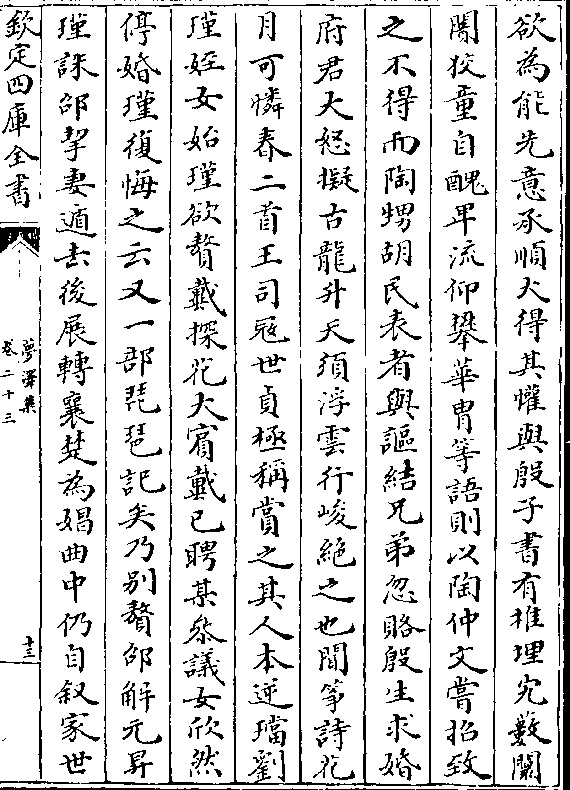 欲為能先意承順大得其懽與殷子書有推理究數闗
闇狡童自醜卑流仰舉華胄等語則以陶仲文嘗招致
之不得而陶甥胡民表者與謳結兄弟忽賂殷生求婚
府君大怒擬古龍升天須浮雲行峻絶之也聞筝詩花
月可憐春二首王司冦世貞極稱賞之其人本逆璫劉
瑾姪女始瑾欲贅戴探花大賓戴已聘某叅議女欣然
停婚瑾復悔之云又一部琵琶記矣乃别贅邵解元昇
瑾誅邵挈妻遁去後展轉襄楚為娼曲中仍自叙家世
欽定四庫全書
夢澤集
卷二十三
十三